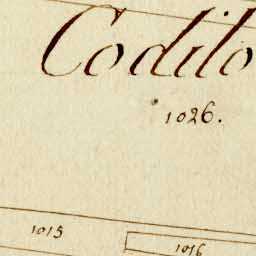 Codilo
1026.
1015
1016